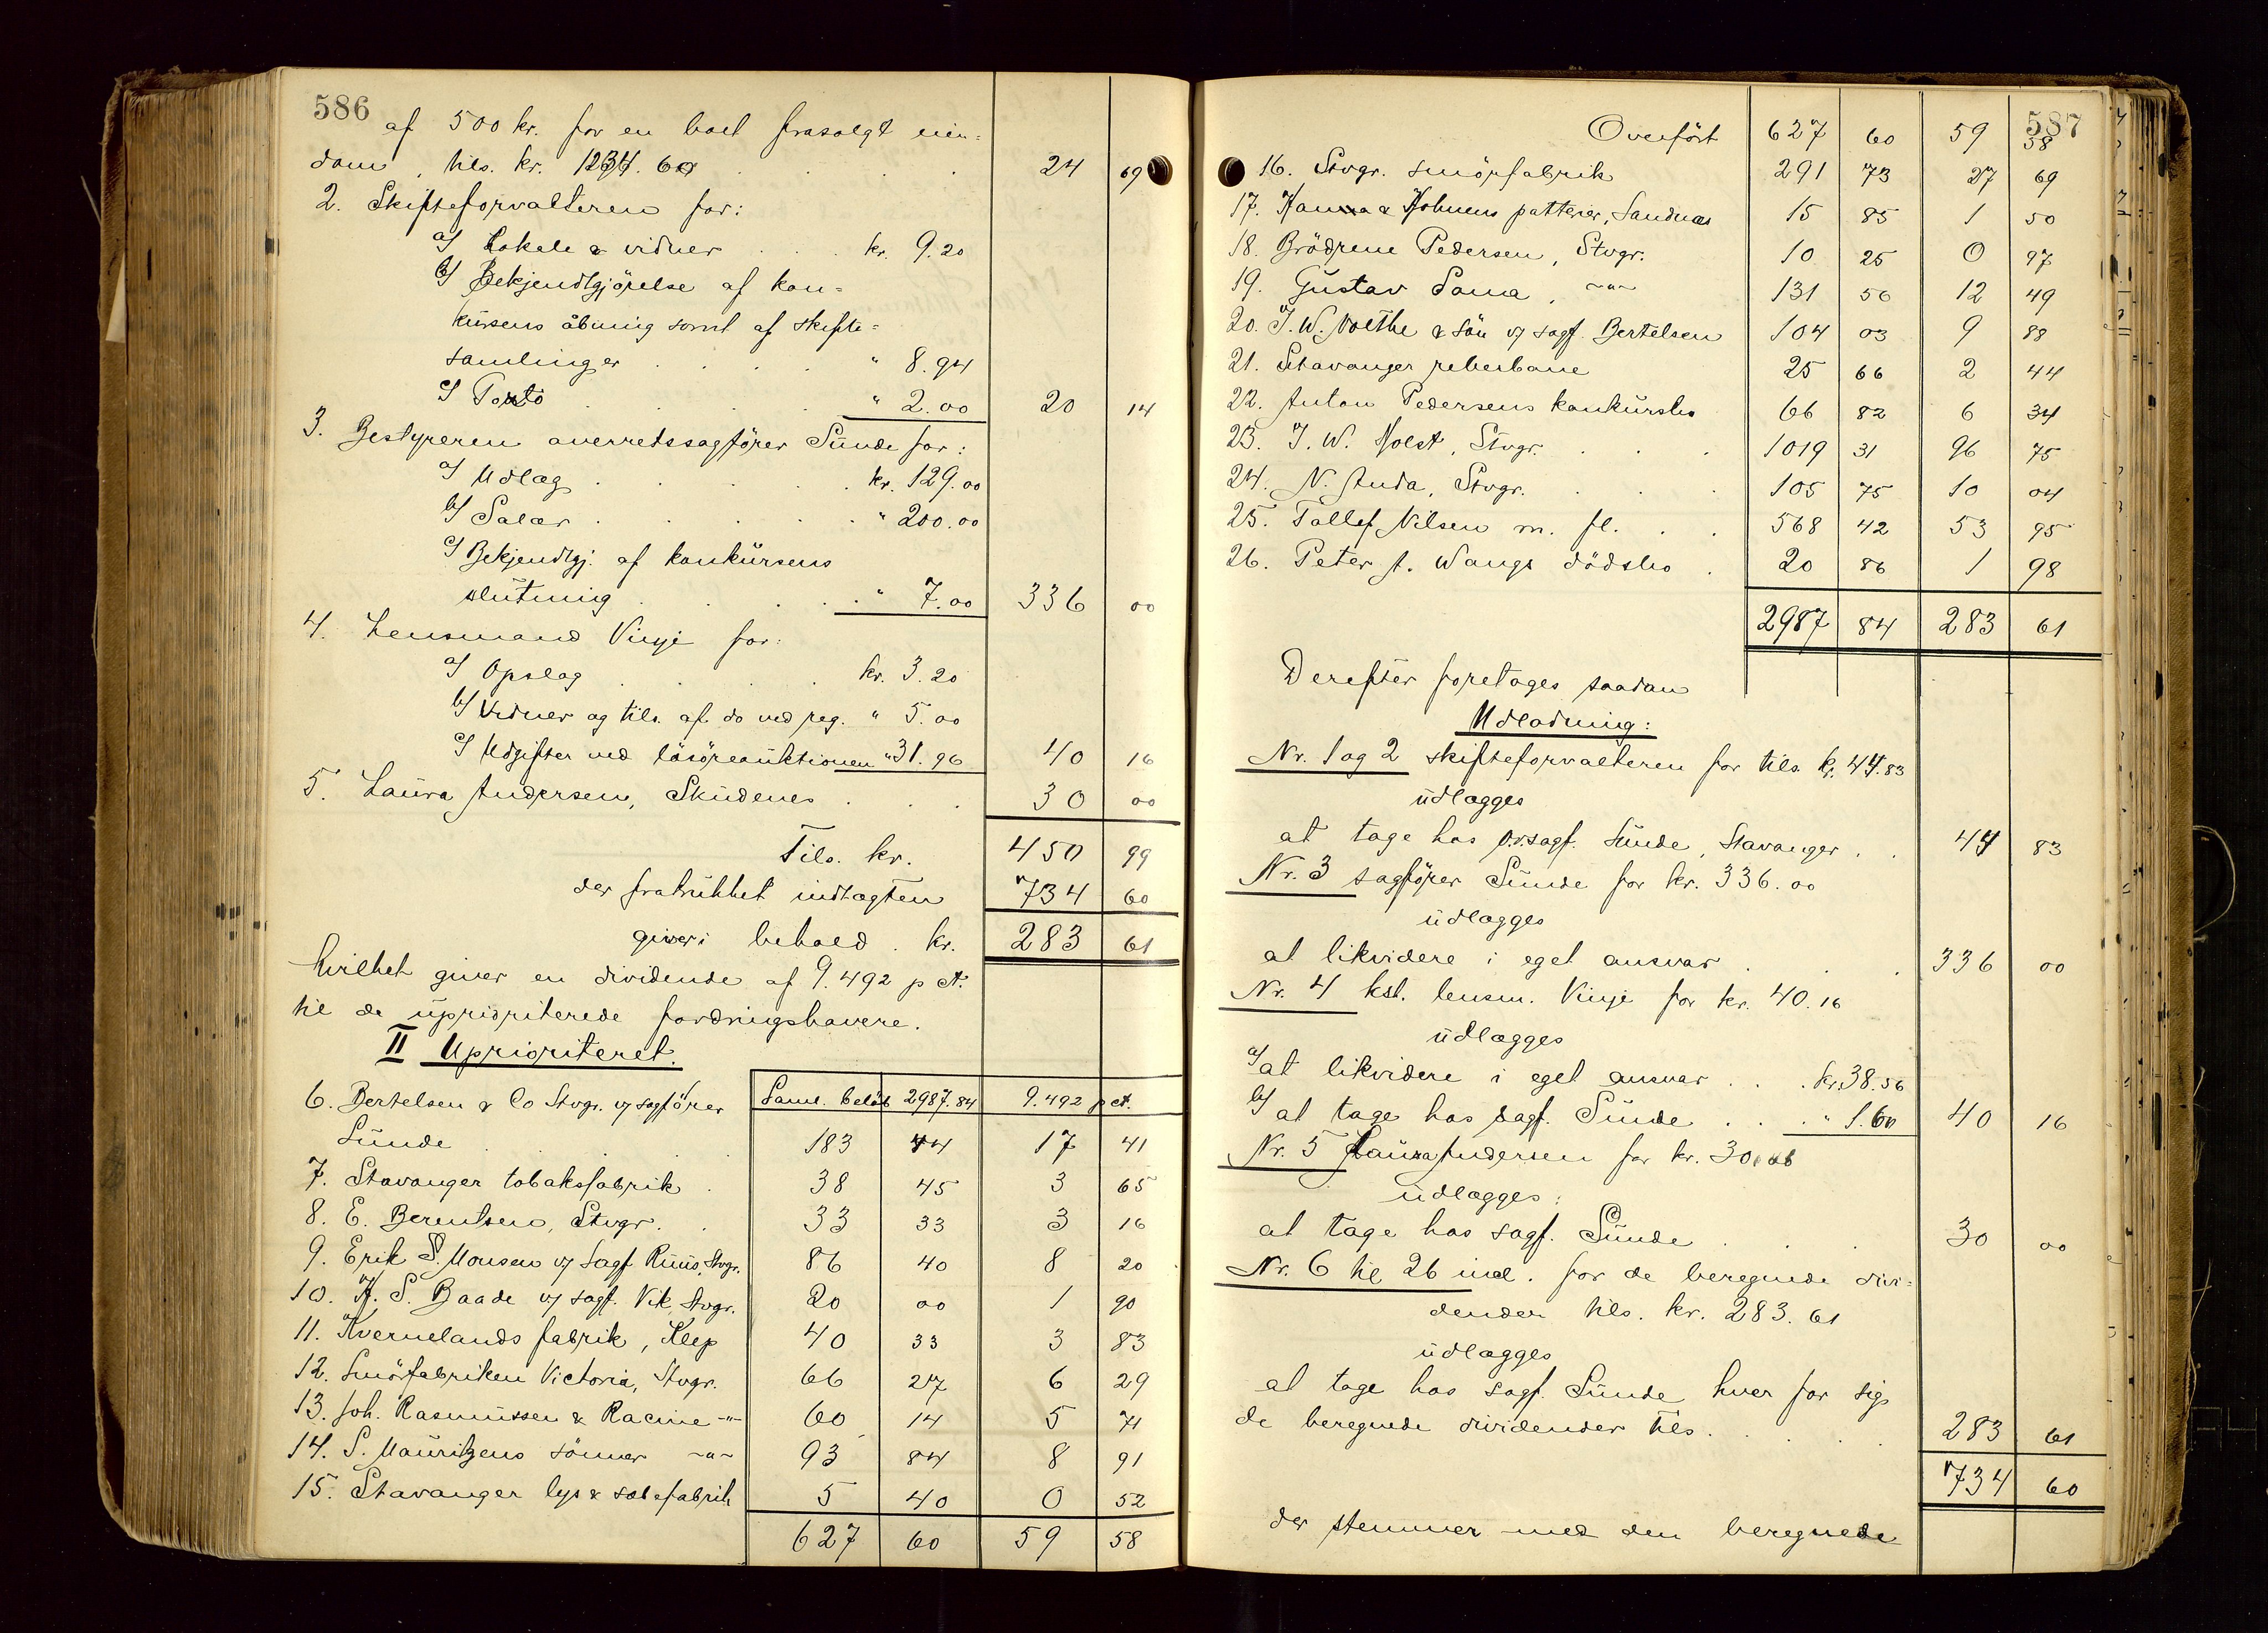 586
af 500 kr. for en boet frasolgt eien-
dom, tils. kr. 1234.60 . . . 24 69
2. Skifteforvalteren for:
a/ Lokale & vidner . . . kr. 9.20
b/ Bekjendtgjörelse af kon-
kursens åbning samt af skifte-
samlinger . . . . " 8.94
c/ Porto . . . . " 2.00 20 14
3. Bestyreren overretssagförer Sunde for:
a/ Udlæg . . . . kr. 129.00
b/ Salær . . . . " 200.00
c/ Bekjendtgj. af konkursens
slutning . . . . " 7.00 336 00
4. Lensmand Vinje for:
a/ Opslag . . . . kr. 3.20
b/ Vidner og tils. af do ved reg. " 5.00
c/ Udgifter ved lösöreauktionen " 31.96 40 16
5. Laura Andersen, Skudenes . . . 30 00
Tils. kr. 450 99
der fratrukket indtægten 734 60
giver i behold . kr. 283 61
hvilket giver en dividende af 9.492 p ct.
til de uprioriterede fordringshavere.
II Uprioriteret.
6. Bertelsen & Co Stvgr. v/ sagförer Saml. beløb 2987.84 9.492 p ct.
Sunde . . . 183 44 17 41
7. Stavanger tobaksfabrik . 38 45 3 65
8. E. Berentsen, Stvgr. . . 33 33 3 16
9. Erik S. Monsen v/ sagf. Ruus, Stvgr. 86 40 8 20
10. K. S. Baade v/ sagf. Vik, Stvgr. 20 00 1 90
11. Kvernelands fabrik, Klep 40 33 3 83
12. Smörfabriken Victoria, Stvgr. 66 27 6 29
13. Joh. Rasmussen & Racine -"- 60 14 5 71
14. S. Mauritzens sönner -"- 93 84 8 91
15. Stavanger lys & sæbefabrik 5 40 0 52
627 60 59 58
587
Overfört 627 60 59 58
16. Stvgr. smörfabrik 291 73 27 69
17. Hanna & Holmens potteier, Sandnæs 15 85 1 50
18. Brödrene Pedersen, Stvgr. 10 25 0 97
19. Gustav Soma, -"- 131 56 12 49
20. J. W. Noethe & sön v/ sagf. Bertelsen 104 03 9 88
21. Stavanger reberbane 25 66 2 44
22. Anton Pedersens konkursbo 66 82 6 34
23. J. W. Holst, Stvgr. . . . 1019 31 96 75
24. N. Anda, Stvgr. . . . 105 75 10 04
25. Tollef Nilsen m. fl. . . 568 42 53 95
26. Peter A. Wangs dödsbo . 20 86 1 98
2987 84 283 61
Derefter foretages saadan
Udlodning:
Nr. 1 og 2 skifteforvalteren for tils. kr. 44.83
udlægges
at tage hos o.r.sagf. Sunde, Stavanger . . 44 83
Nr. 3 sagförer Sunde for kr. 336.00
udlægges
at likvidere i eget ansvar . . . 336 00
Nr. 4 kst. lensm. Vinje for kr. 40.16
udlægges
a/ at likvidere i eget ansvar . . . kr. 38.56
b/ at tage hos sagf. Sunde . . . " 1.60 40 16
Nr. 5 Laura Andersen for kr. 30.00
udlægges:
at tage hos sagf. Sunde . . . 30 00
Nr. 6 til 26 incl. for de beregnede divi-
dender tils. kr. 283.61
udlægges
at tage hos sagf. Sunde hver for sig
de beregnede dividender tils. . . . 283 61
734 60
der stemmer med den beregnede